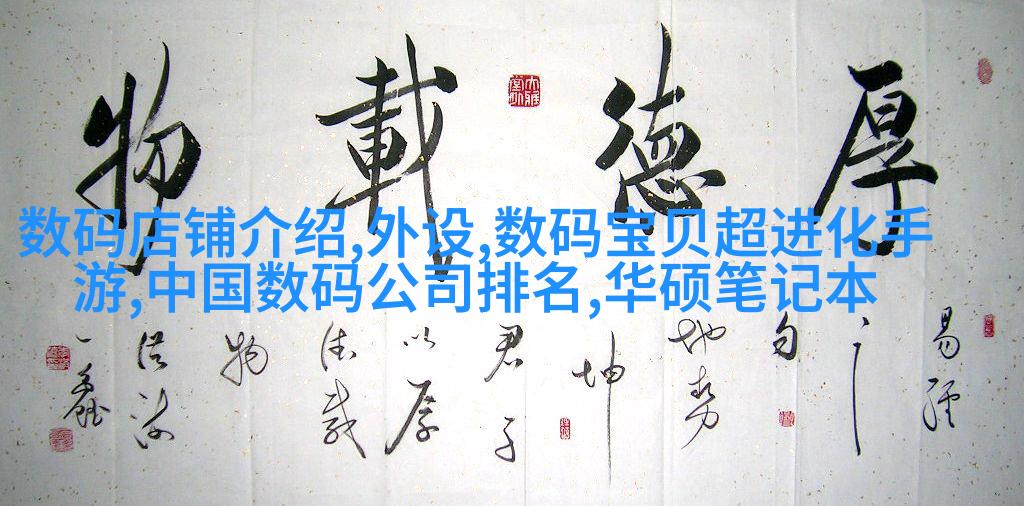 厚德載物
数码店铺介绍,外设,数码宝贝超进化手
游,中国数码公司排名,华硕笔记本
易經
之一
句
地势
坤
君子
以厚
德载
物